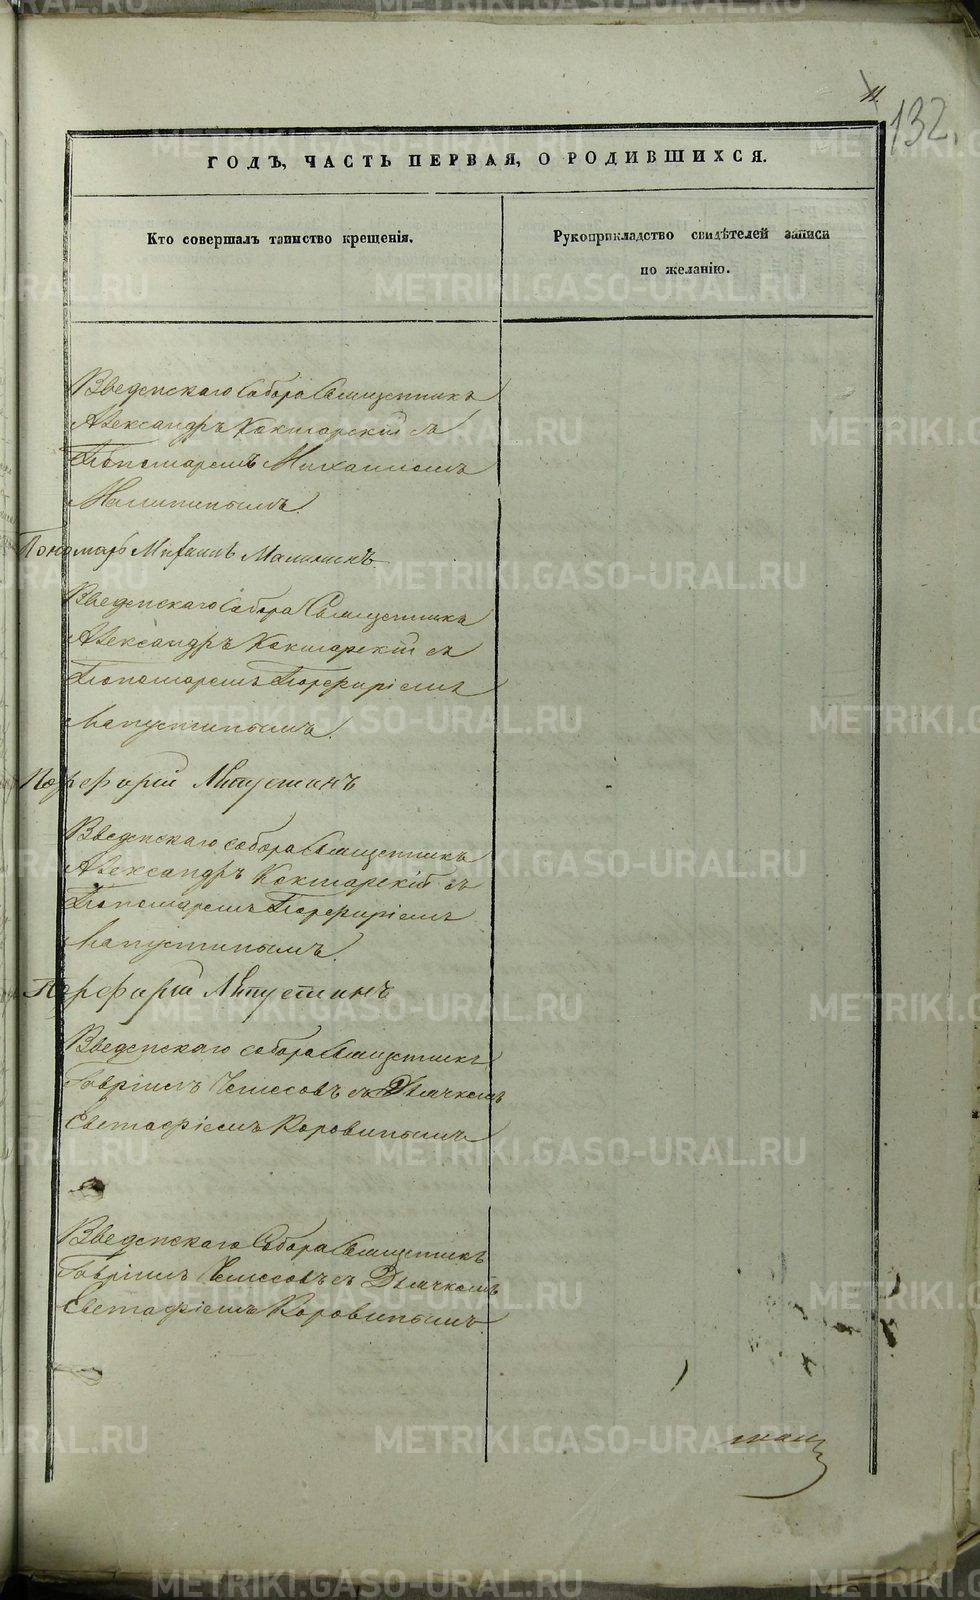 11.
132.
ГОДЪ, ЧАСТЬ ПЕРВАЯ, О РОДИВШИХСЯ.
Кто совершалъ таинство крещенія.
Рукоприкладство свидѣтелей записи
по желанію.
Введенскаго Собора Священникъ
Александръ Кокшарскій съ
Пономаремъ Михаиломъ
Малининымъ.
Пономарь Михаилъ Малининъ
Введенскаго Собора Священникъ
Александръ Кокшарскій съ
Пономаремъ Порфиріемъ
Лапустинымъ.
Порфирій Лапустинъ
Введенскаго собора Священникъ
Александръ Кокшарскій съ
Пономаремъ Порфиріемъ
Лапустинымъ.
Порфирій Лапустинъ
Введенскаго собора Священникъ
Гавріилъ съ Дьячкомъ
Евстафіемъ Коровинымъ
Введенскаго Собора Священникъ
Гавріилъ съ Дьячкомъ
Евстафіемъ Коровинымъ.
METRIKI.GASO-URAL.RU